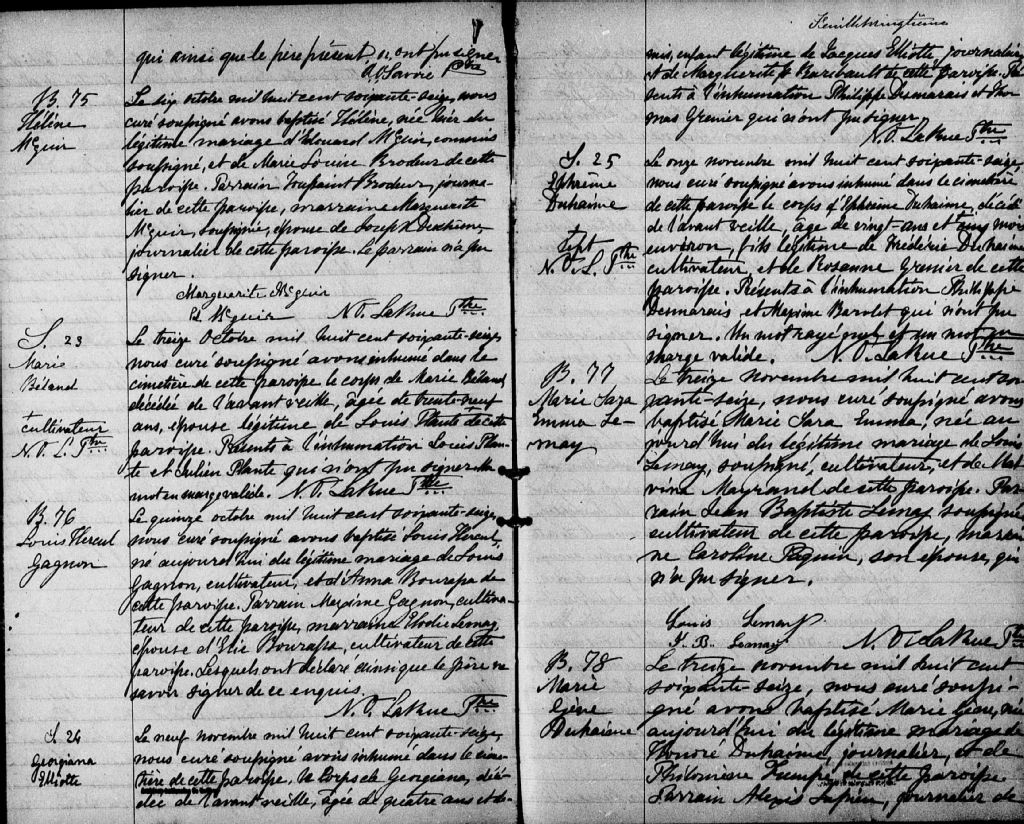 qui ainsi que le père présent n'ont pu signer
Ptre
B. 75
Hélène
McGuir
Le six octobre mil huit cent soixante-seize, nous
curé soussigné avons baptisé Hélène, née hier du
légitime mariage d'Edouard McGuir, commis
soussigné, et de Marie Louise Brodeur de cette
paroisse. Parrain Toussaint Brodeur, journa-
lier de cette paroisse, marraine Marguerite
McGuir, soussignée, épouse de Joseph
journalier de cette paroisse. Le parrain n'a pu
signer.
Marguerite McGuir
Ed. McGuir N. O. LaRue Ptre
S. 23
Marie
Béland
+
cultivateur
N. O. L. Ptre
Le treize Octobre mil huit cent soixante-seize,
nous curé soussigné avons inhumé dans le
cimetère de cette paroisse le corps de Marie Béland
décédée de l'avant veille, âgée de trente-neuf
ans, épouse légitime de Louis Plante + de cette
paroisse. Présents à l'inhumation Louis Plan-
te et Julien Plante qui n'ont pu signer. Un
mot en marge valide. N. O. LaRue Ptre
B. 76
Louis Hercul
Gagnon
Le quinze octobre mil huit cent soixante-seize,
nous curé soussigné avons baptisé Louis Hercul,
né aujourd'hui du légitime mariage de Louis
Gagnon, cultivateur, et d'Anna Bourassa de
cette paroisse. Parrain Maxime Gagnon, cultiva-
teur de cette paroisse, marraine Elodie Lemay,
épouse d'Elie Bourassa, cultivateur de cette
paroisse. Lesquels ont déclaré ainsi que le père ne
savoir signer de ce enquis.
N. O. LaRue Ptre
S. 24
Georgiana
Elliotte
Le neuf novembre mil huit cent soixante-seize,
nous curé soussigné avons inhumé dans le cime-
tière de cette paroisse, le corps de Georgiana, décé-
dée de l'avant veille, âgée de quatre ans et de-
Feuille vingtième
mis, enfant légitime de Jacques Elliotte, journalier
et de Marguerite Baribault de cette paroisse. Pré-
sents à l'inhumation Philippe Dumarais et Tho-
mas Grenier qui n'ont pu signer.
N. O. LaRue Ptre
S. 25
Ephrème
Duhaime
+ sept
N. O. L. Ptre
Le onze novembre mil huit cent soixante-seize,
nous curé soussigné avons inhumé dans le cimetère
de cette paroisse le corps d'Ephrème Duhaime, décédé
de l'avant veille, âgé de vingt-ans et + mois
environ, fils légitime de Duhaime
cultivateur, et de Rosanne Grenier de cette
paroisse. Présents à l'inhumation Philippe
Desmarais, et Maxime Barolet qui n'ont pu
signer. Un mot rayé nul et un mot en
marge valide. N. O. LaRue Ptre
B. 77
Marie Sara
Emma Le-
may
Le treize novembre mil huit cent soi-
xante-seize, nous curé soussigné avons
baptisé Marie Sara Emma, née au-
jourd'hui du légitime mariage de Louis
Lemay, soussigné, cultivateur, et de Mal-
vina Mayrand de cette paroisse. Par-
rain Jean Baptiste Lemay soussigné
cultivateur de cette paroisse, marrai-
ne Caroline Paquin, son épouse, qui
n'a pu signer.
Louis Lemay
J. B. Lemay N. O. LaRue Ptre
B. 78
Marie
Géne
Duhaime
Le treize novembre mil huit cent
soixante-seize, nous curé soussi-
gné avons baptisé Marie née
aujourd'hui du légitime mariage de
Honoré Duhaime, journalier, et de
Philomène de cette paroisse
Parrain Alexis journalier de